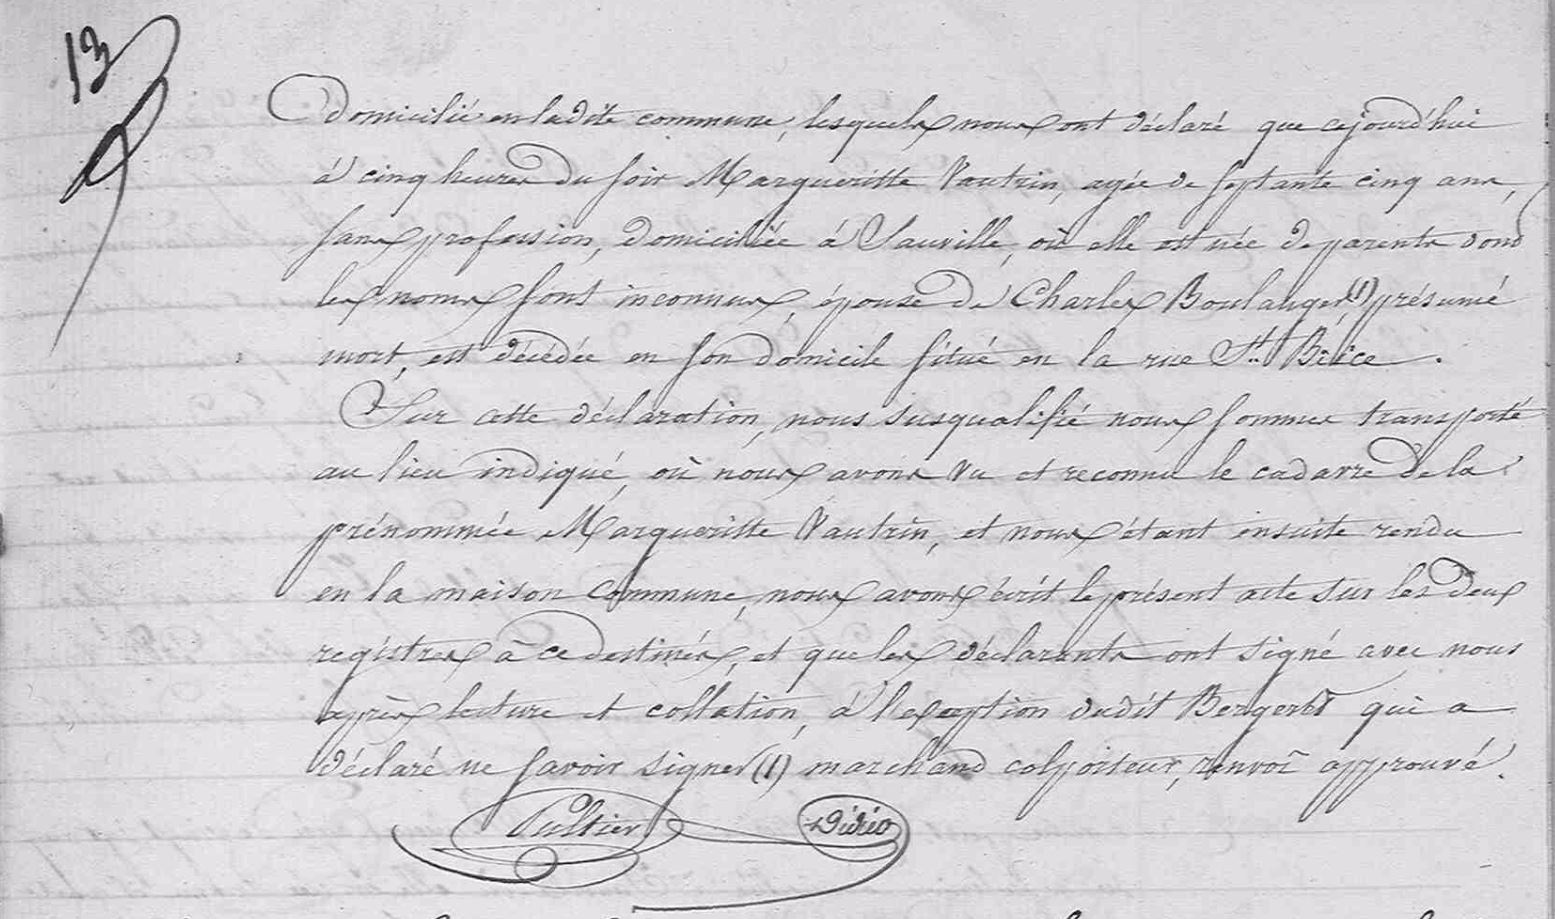 13
Domicilié en ladite commune, lesquels nous ont déclaré que cejourd'hui
à cinq heures du soir Margueritte Vautrin, agée de septante cinq ans,
sans profession, domiciliée à Sauville, où elle est née de parents dond
les noms sont inconnus, épouse de Charles Boulanger (1) présumé
mort, est décédée en son domicile situé en la rue St. Brice.
Sur cette déclaration, nous susqualifié nous sommes transporté
au lieu indiqué, où nous avons vu et reconnu le cadavre de la
prénommée Margueritte Vautrin, et nous étant ensuite rendu
en la maison commune, nous avons écrit le présent acte sur les deux
registres à ce destinés, et que les déclarants ont signé avec nous
après lecture et collation, à l'exception dudit Bergerot qui a
déclaré ne savoir signer (1) marchand colporteur, renvoi approuvé.
Pultier Didio